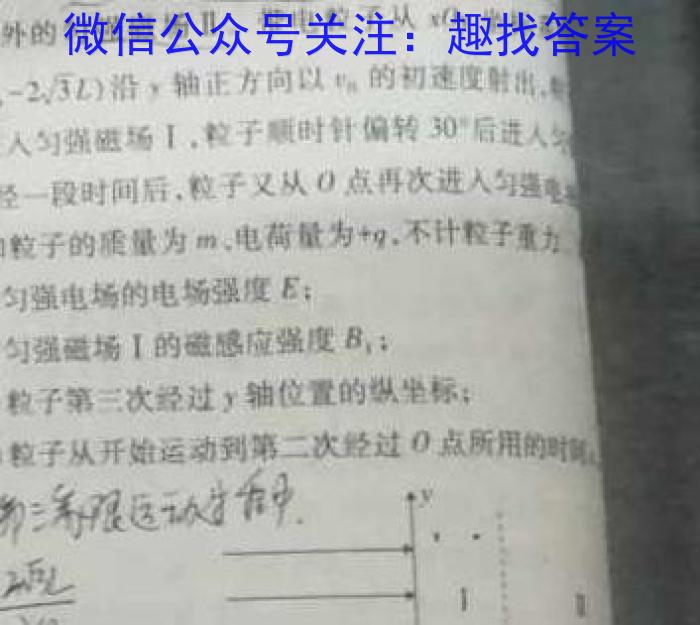 微信公众号关注：趣找答案
外的
粒子从 xO
,-2√3L)沿 y 轴正方向以 v₀ 的初速度射出,
入匀强磁场Ⅰ,粒子顺时针偏转 30°后进入匀
经一段时间后,粒子又从 O 点再次进入匀强电
粒子的质量为 m、电荷量为+q,不计粒子重力
匀强电场的电场强度 E;
匀强磁场Ⅰ的磁感应强度 B₁;
粒子第三次经过 y 轴位置的纵坐标;
粒子从开始运动到第二次经过 O 点所用的时间
y
Ⅰ
Ⅱ